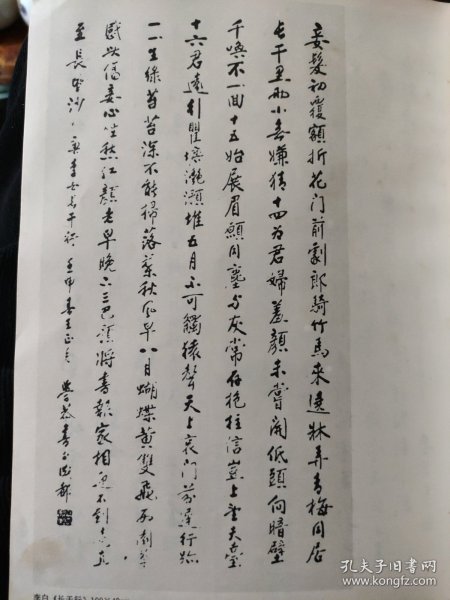 妾髮初覆額折花门前劇郎騎竹馬來遶牀弄青梅同居
長干里兩小無嫌猜十四為君婦羞顏未嘗開低頭向暗壁
千喚不一回十五始展眉願同塵与灰常存抱柱信豈上望夫臺
十六君遠行瞿塘灩澦堆五月不可觸猿聲天上哀门前遲行跡
一一生綠苔苔深不能掃落葉秋风早八月蝴蝶黃雙飛西園草
感此傷妾心坐愁紅顏老早晚下三巴預將書報家相迎不道遠直
至長風沙 李白長干行 壬申春王正月 書於成都
李白《长干行》
孔夫子旧书网